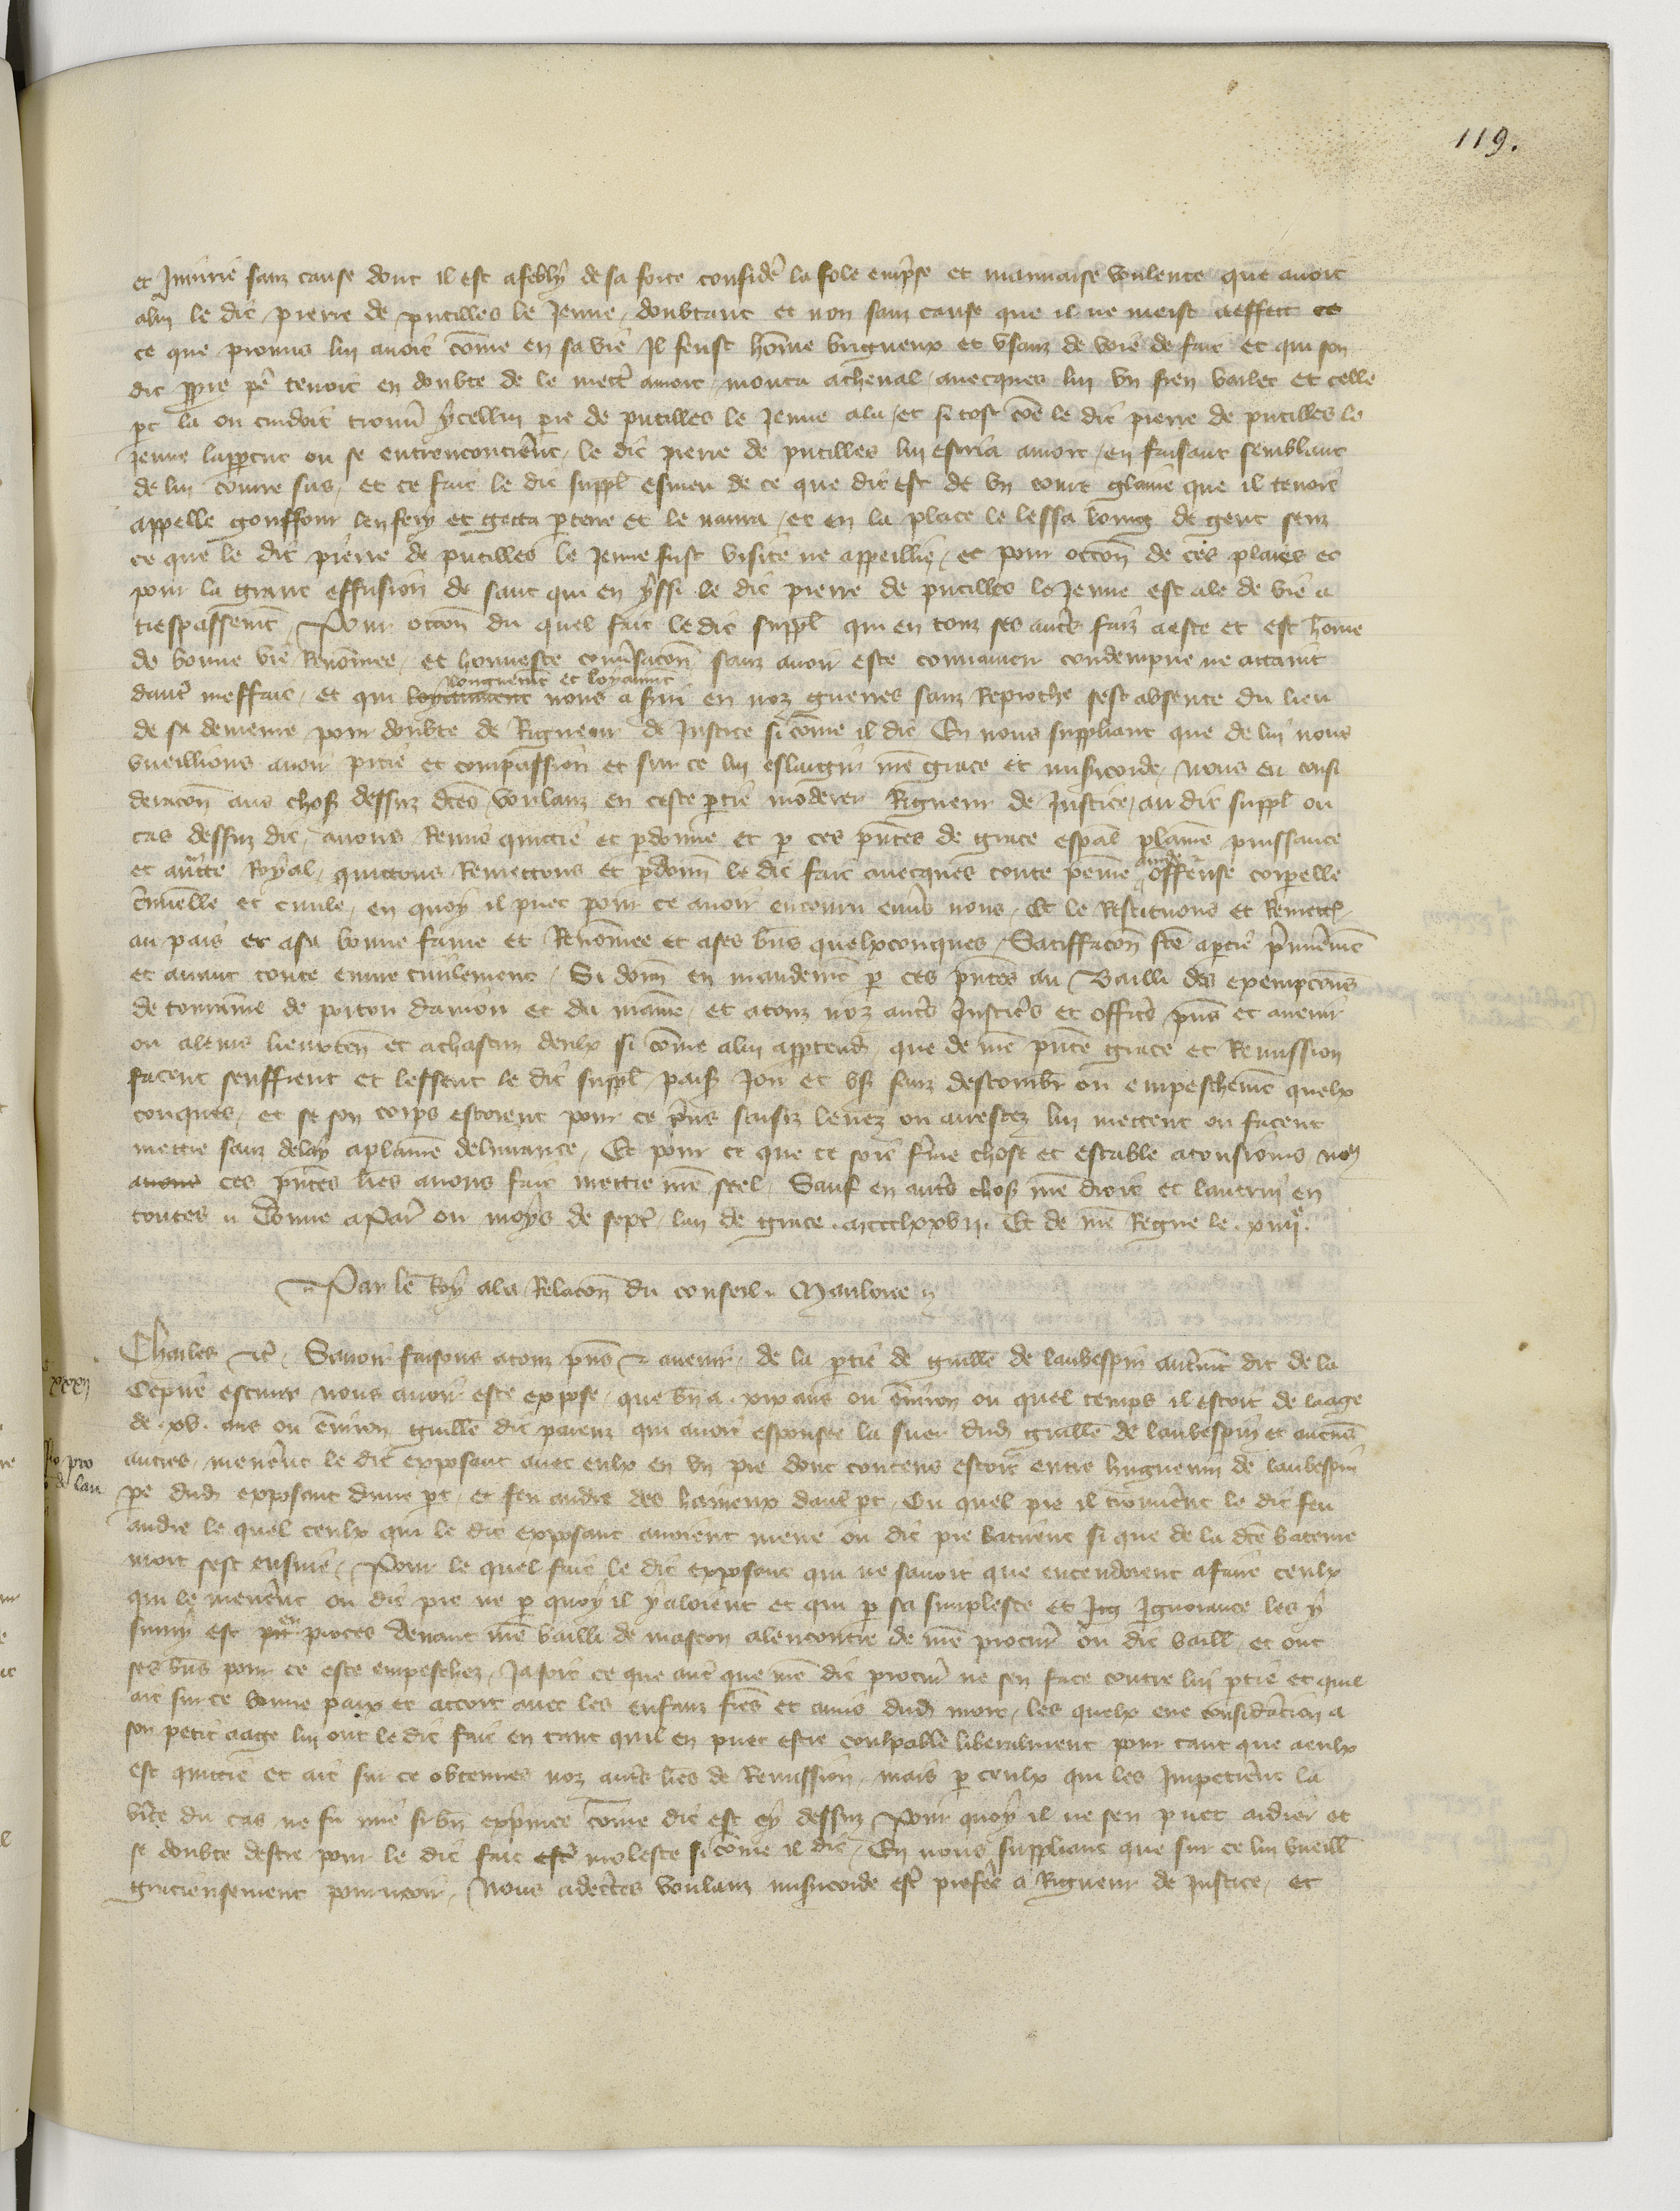 119.
et Iniurie sanz cause dont il est afebly de sa force consider la fole emprse et mauuaise voulente que auoit
a lui le dit pierre de putilles le Jeune doubtant et non sanz cause que il ne meist a effect ce
ce que promis lui auoit come en sa vie Il feust home brigueux et vsanz de voie de fait et qui son
dit ppre pe tenoit en doubte de le mectre a mort monta a cheual auecques lui vn sien varlet et celle
pt la ou cuidoit trouuer ycellui pre de putilles le Jeune ala et si tost coe le dit pierre de putilles le
Jeune lapparcut ou se entrencontrent le dit pierre de putilles lui escria a mort en faisant semblant
de lui courre sus et ce fait le dit suppl esmeu de ce que dit est de vn court glaiue que il tenoit
appelle gouffour len fery et getta p terre et le naura et en la place le lessa loing de gent senz
ce que le dit pierre de putilles le Jeune fust visite ne appeillie et pour occon de ces plaies et
pour la grant effusion de sanc qui en yssi le dit pierre de putilles le Jeune est ale de vie a
trespassemt Pour occon du quel fait le dit suppl qui en touz ses autres faiz a este et est home
de bonne vie Renomee et honneste conusacon sanz auoir este conuaincu condempne ne attaint
longuemt et loyaumt
dautre meffait et qui loyaument nous a serui en noz guerres sanz Reproche sest absente du lieu
de sa demeure pour doubte de Rigueur de Justice si come il dit En nous suppliant que de lui nous
vueillions auoir pitie et compassion et sur ce lui eslargir nre grace et misicorde Nous eu consi
deracon aus choses dessuz dtes voulanz en ceste partie moderer Rigueur de Justice au dit suppl ou
cas dessuz dit auons Remis quittie et pdonne et p ces pntes de grace espal plaine puissance
amde
et auctte Royal quittons Remettons et pdonn le dit fait auecques toute peine offense corpelle
criuelle et ciuile en quoy il puet pour ce auoir encouru enuers nous Et le Restituons et Remett
au pais et a sa bonne fame et Renomee et a ses bns quelxconques Satiffacon fte a partie primremt
et auant toute euure ciuilement Si donn en mandemt p ces pntes au Bailli des exempcons
de touraine de poitou daniou et du maine et a touz noz autres Justiciers et officiers pns et auenir
ou a leurs lieuxten et a chascun deulx si come a lui apptendr que de nre pnte grace et Remission
facent seuffrent et lessent le dit suppl paisbl Joir et vser sanz descombrer ou empeschemt quelx
conques et se son corps estoient pour ce prins saisiz leuez ou arrestez lui mettent ou facent
mettre sanz delay a plaine deliurance Et pour ce que ce soit ferme chose et estable a tousiours nous
auons ces pntes lres auons fait mettre nre seel Sauf en autres choses nre droit et lautrui en
toutes Donne a Paris ou moys de sept lan de grace mccclxxvii Et de nre Regne le xiiiie
Par le Roy a la Relacon du conseil Mauloue
Charles etc Sauoir faisons a touz pns et auenir de la partie de guille de laubespin autremt dit de la
Cepiere escuier nous auoir este expose que bn a xix ans ou enuiron ou quel temps il estoit de laage
xxxij
de xv ans ou enuiron guille dit parenz qui auoit espousee la suer dud guille de laubespin et aucuns
autres menrent le dit exposant auec eulx en vn pre dont contens estoit entre huguenin de laubespin
pro
de lau
pe dud exposant dune pt et feu andre des hameux dautre pt Ou quel pre il trouuerent le dit feu
andre le quel ceulx qui le dit exposant auoient mene ou dit pre batirent si que de la dte bateure
mort sest ensuie Pour le quel fait le dit exposant qui ne sauoit que entendoient a faire ceulx
qui le menerent ou dit pre ne p quoy il y aloient et qui p sa simplesce et Ing Ignorance les y
suiuy est en proces deuant nre bailli de mascon a lencontre de nre procureur ou dit baill et ont
ses bns pour ce este empeschez Ja soit ce que autre que nre dit procur ne sen face contre lui partie et quil
ait sur ce bonne paix et accort auec les enfanz frs et amis dud mort les quelx eue consideracion a
son petit aage lui ont le dit fait en tant quil en puet estre coulpable liberalment pour tant que a eulx
est quittie et ait sur ce obtenues noz autres lres de Remission mais p ceulx qui les Impetrerent la
verite du cas ne fu mie si bn exprimee come dit est cy dessuz Pour quoy il ne sen puet aidier et
se doubte destre pour le dit fait estre moleste si come il dit En nous suppliant que sur ce lui vueill
gracieusement pourueoir Nous adcertes voulanz misicorde estre preferee a Rigueur de Justice et